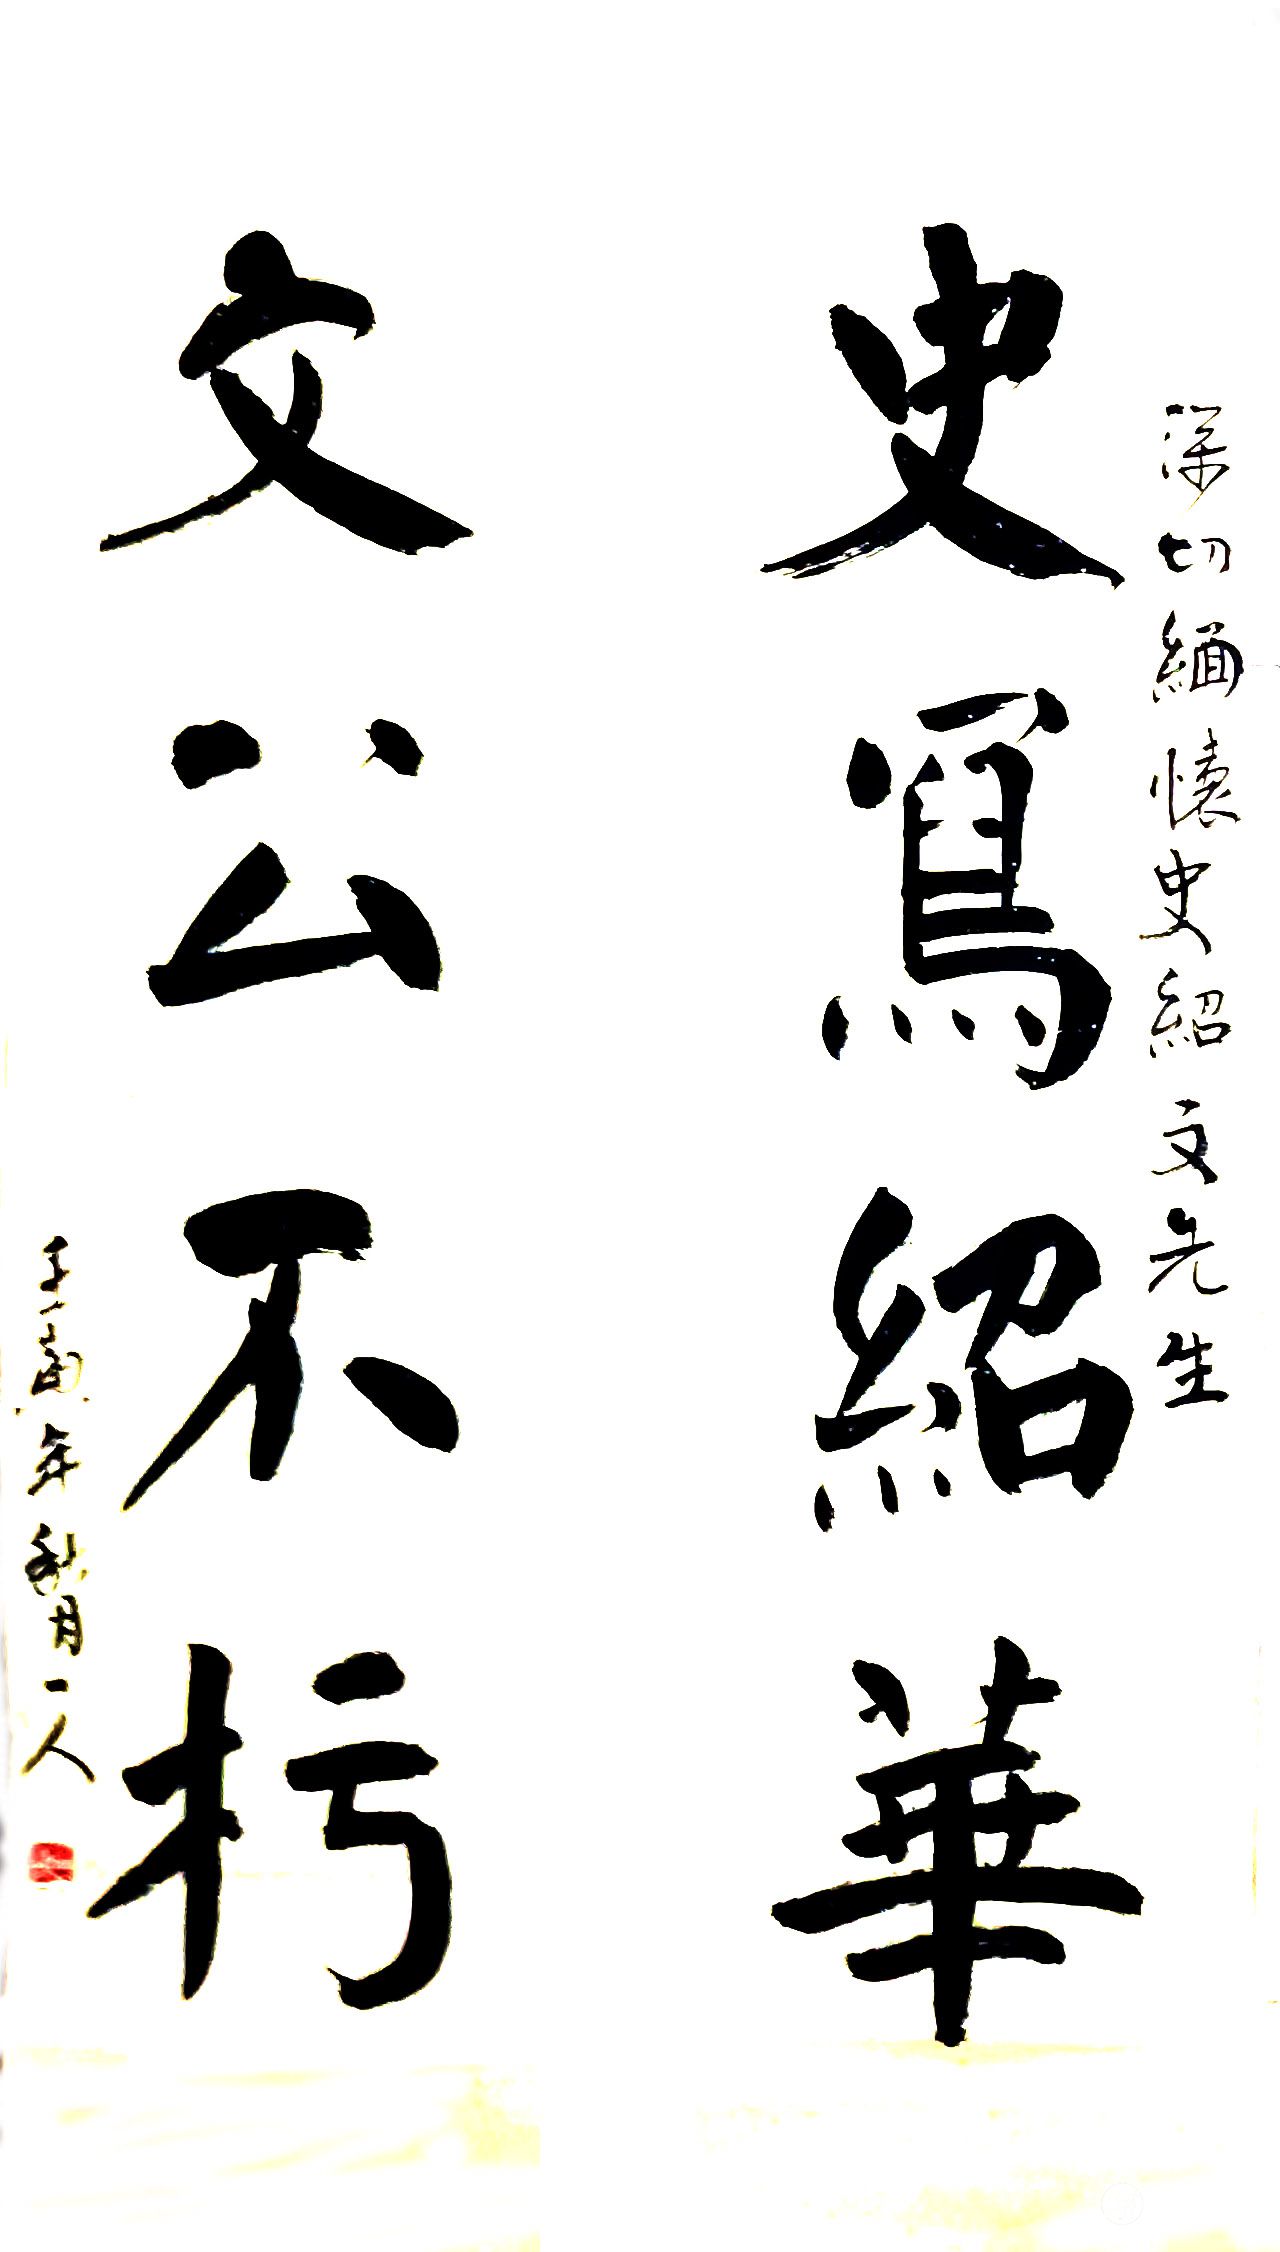 深切緬懷史紹文先生
史寫紹華
文公不朽
壬寅年秋月一人